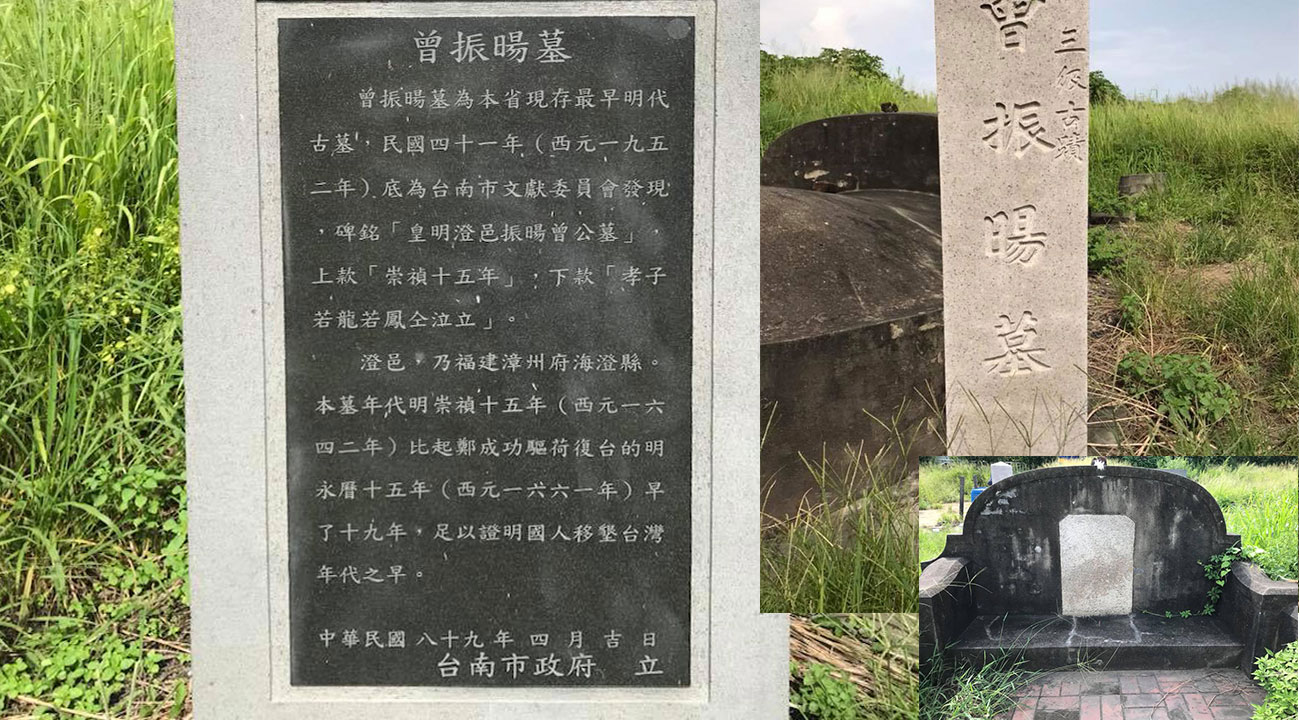 曾振暘墓
曾振暘墓為本省現存最早明代
古墓，民國四十一年（西元一九五
二年）底為台南市文獻委員會發現
，碑銘「皇明澄邑振暘曾公墓」，
上款「崇禎十五年」，下款「孝子
若龍若鳳仝泣立」。
澄邑，乃福建漳州府海澄縣。
本墓年代明崇禎十五年（西元一六
四二年）比起鄭成功驅荷復台的明
永曆十五年（西元一六六一年）早
了十九年，足以證明國人移墾台灣
年代之早。
中華民國八十九年四月吉日
台南市政府 立
三級古蹟
曾振暘墓